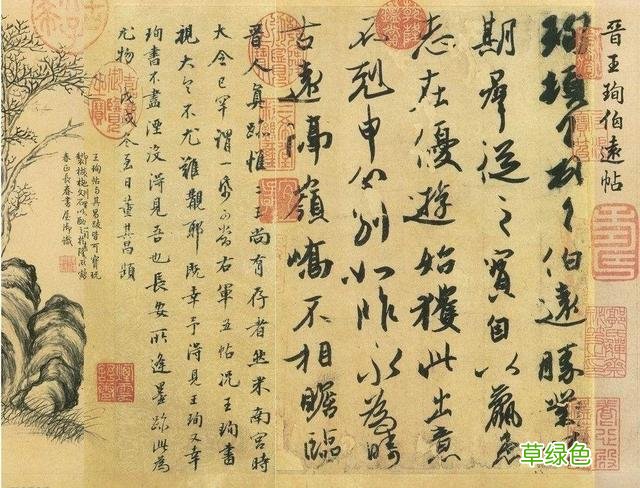 晉王珣伯遠帖
珣頓首頓首伯遠勝業情
期群從之寶自以羸患
志在優遊始獲此出意
不剋申分別如昨永為疇
古遠隔嶺嶠不相瞻臨
晉人真跡惟二王尚有存者然米南宮時
大令已罕謂一紙可當右軍五帖況王珣書
視大令不尤難覯耶既幸予得見王珣又幸
珣書不盡湮沒得見吾也長安所逢墨跡此為
尤物戊戌冬至日董其昌題
王珣帖與其昌跋皆可寶玩
文石以配之乾隆丙寅
春正長春書屋御識
草绿色